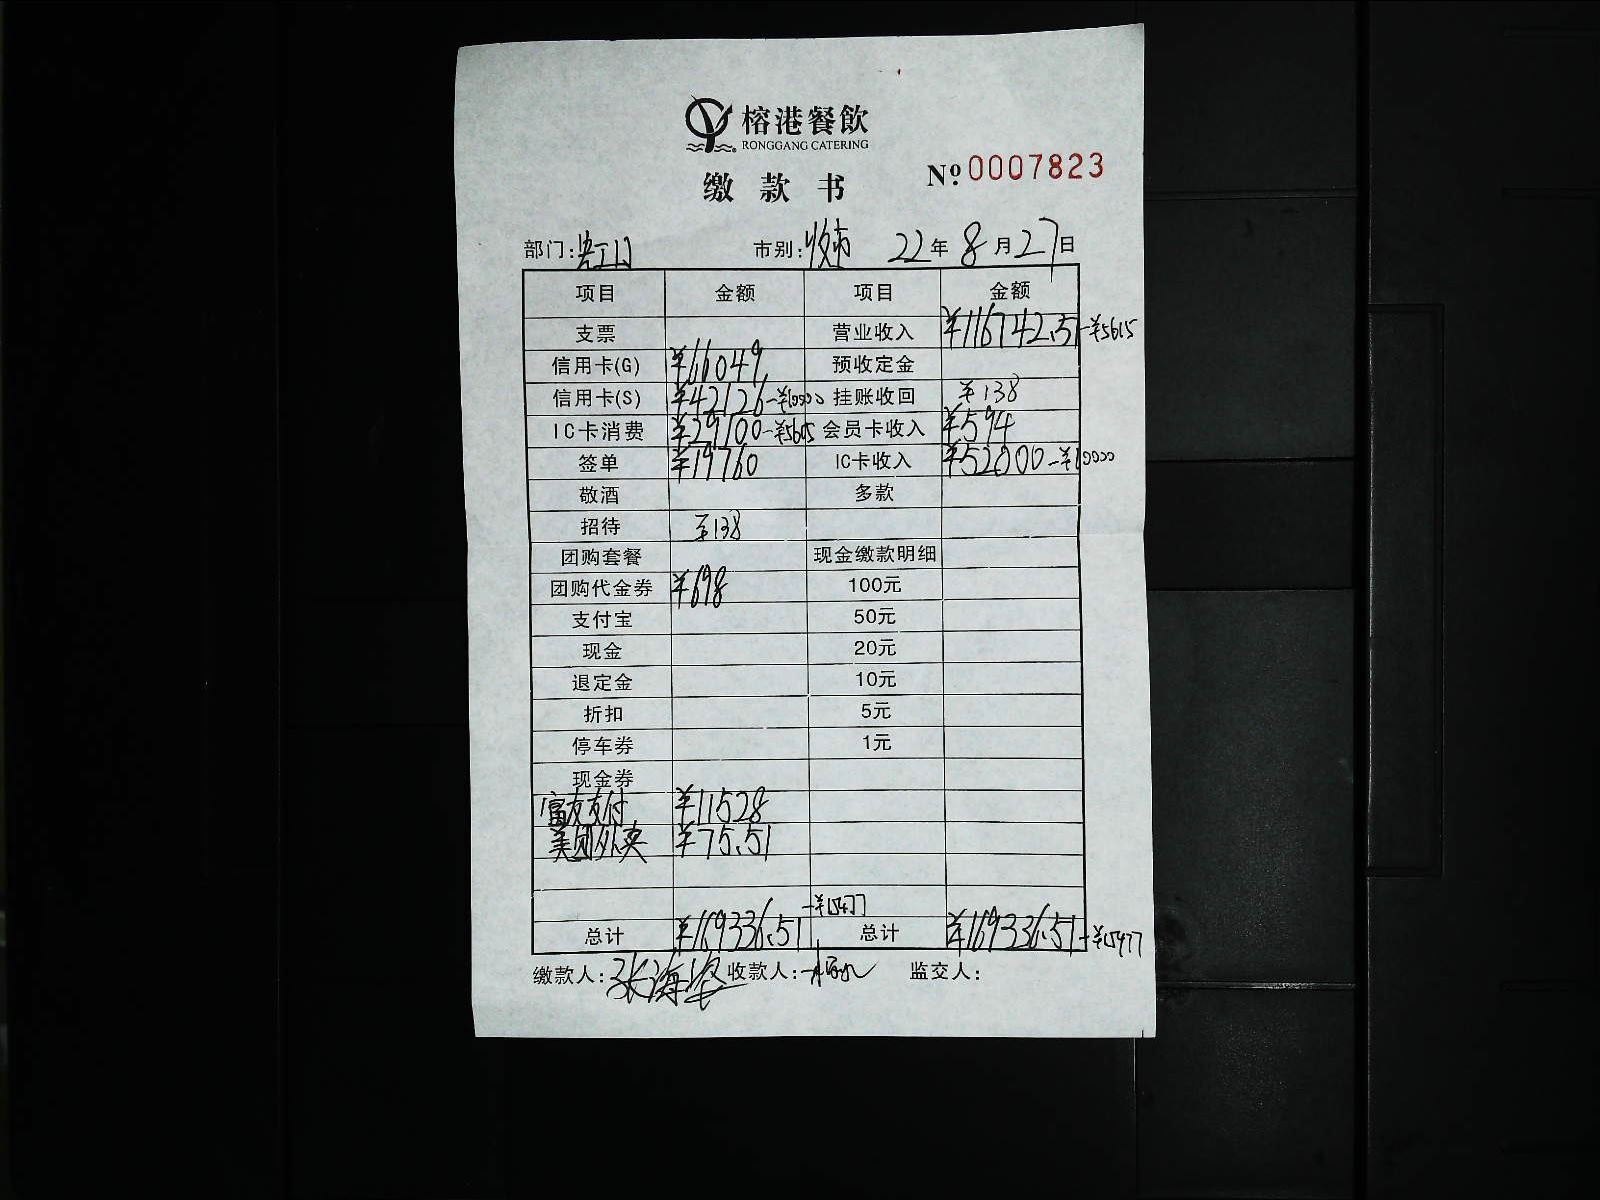 榕港餐飲
RONGGANG CATERING
缴款书
№ 0007823
部门: 市别: 22年8月27日
项目 金额 项目 金额
支票 营业收入 ¥116742.51 -¥5615
信用卡(G) ¥66049 预收定金
信用卡(S) ¥42126 -¥10000 挂账收回 ¥138
IC卡消费 ¥29100 会员卡收入 ¥594
签单 ¥19760 IC卡收入 ¥52000 -¥10000
敬酒 多款
招待 ¥138
团购套餐 现金缴款明细
团购代金券 ¥698
100元
支付宝 50元
现金 20元
退定金 10元
折扣 5元
停车券 1元
现金券
富友支付 ¥11528
美团外卖 ¥75.51
总计 ¥169336.51 -¥15477 总计 ¥169336.51 -¥15477
缴款人: 收款人: 监交人: